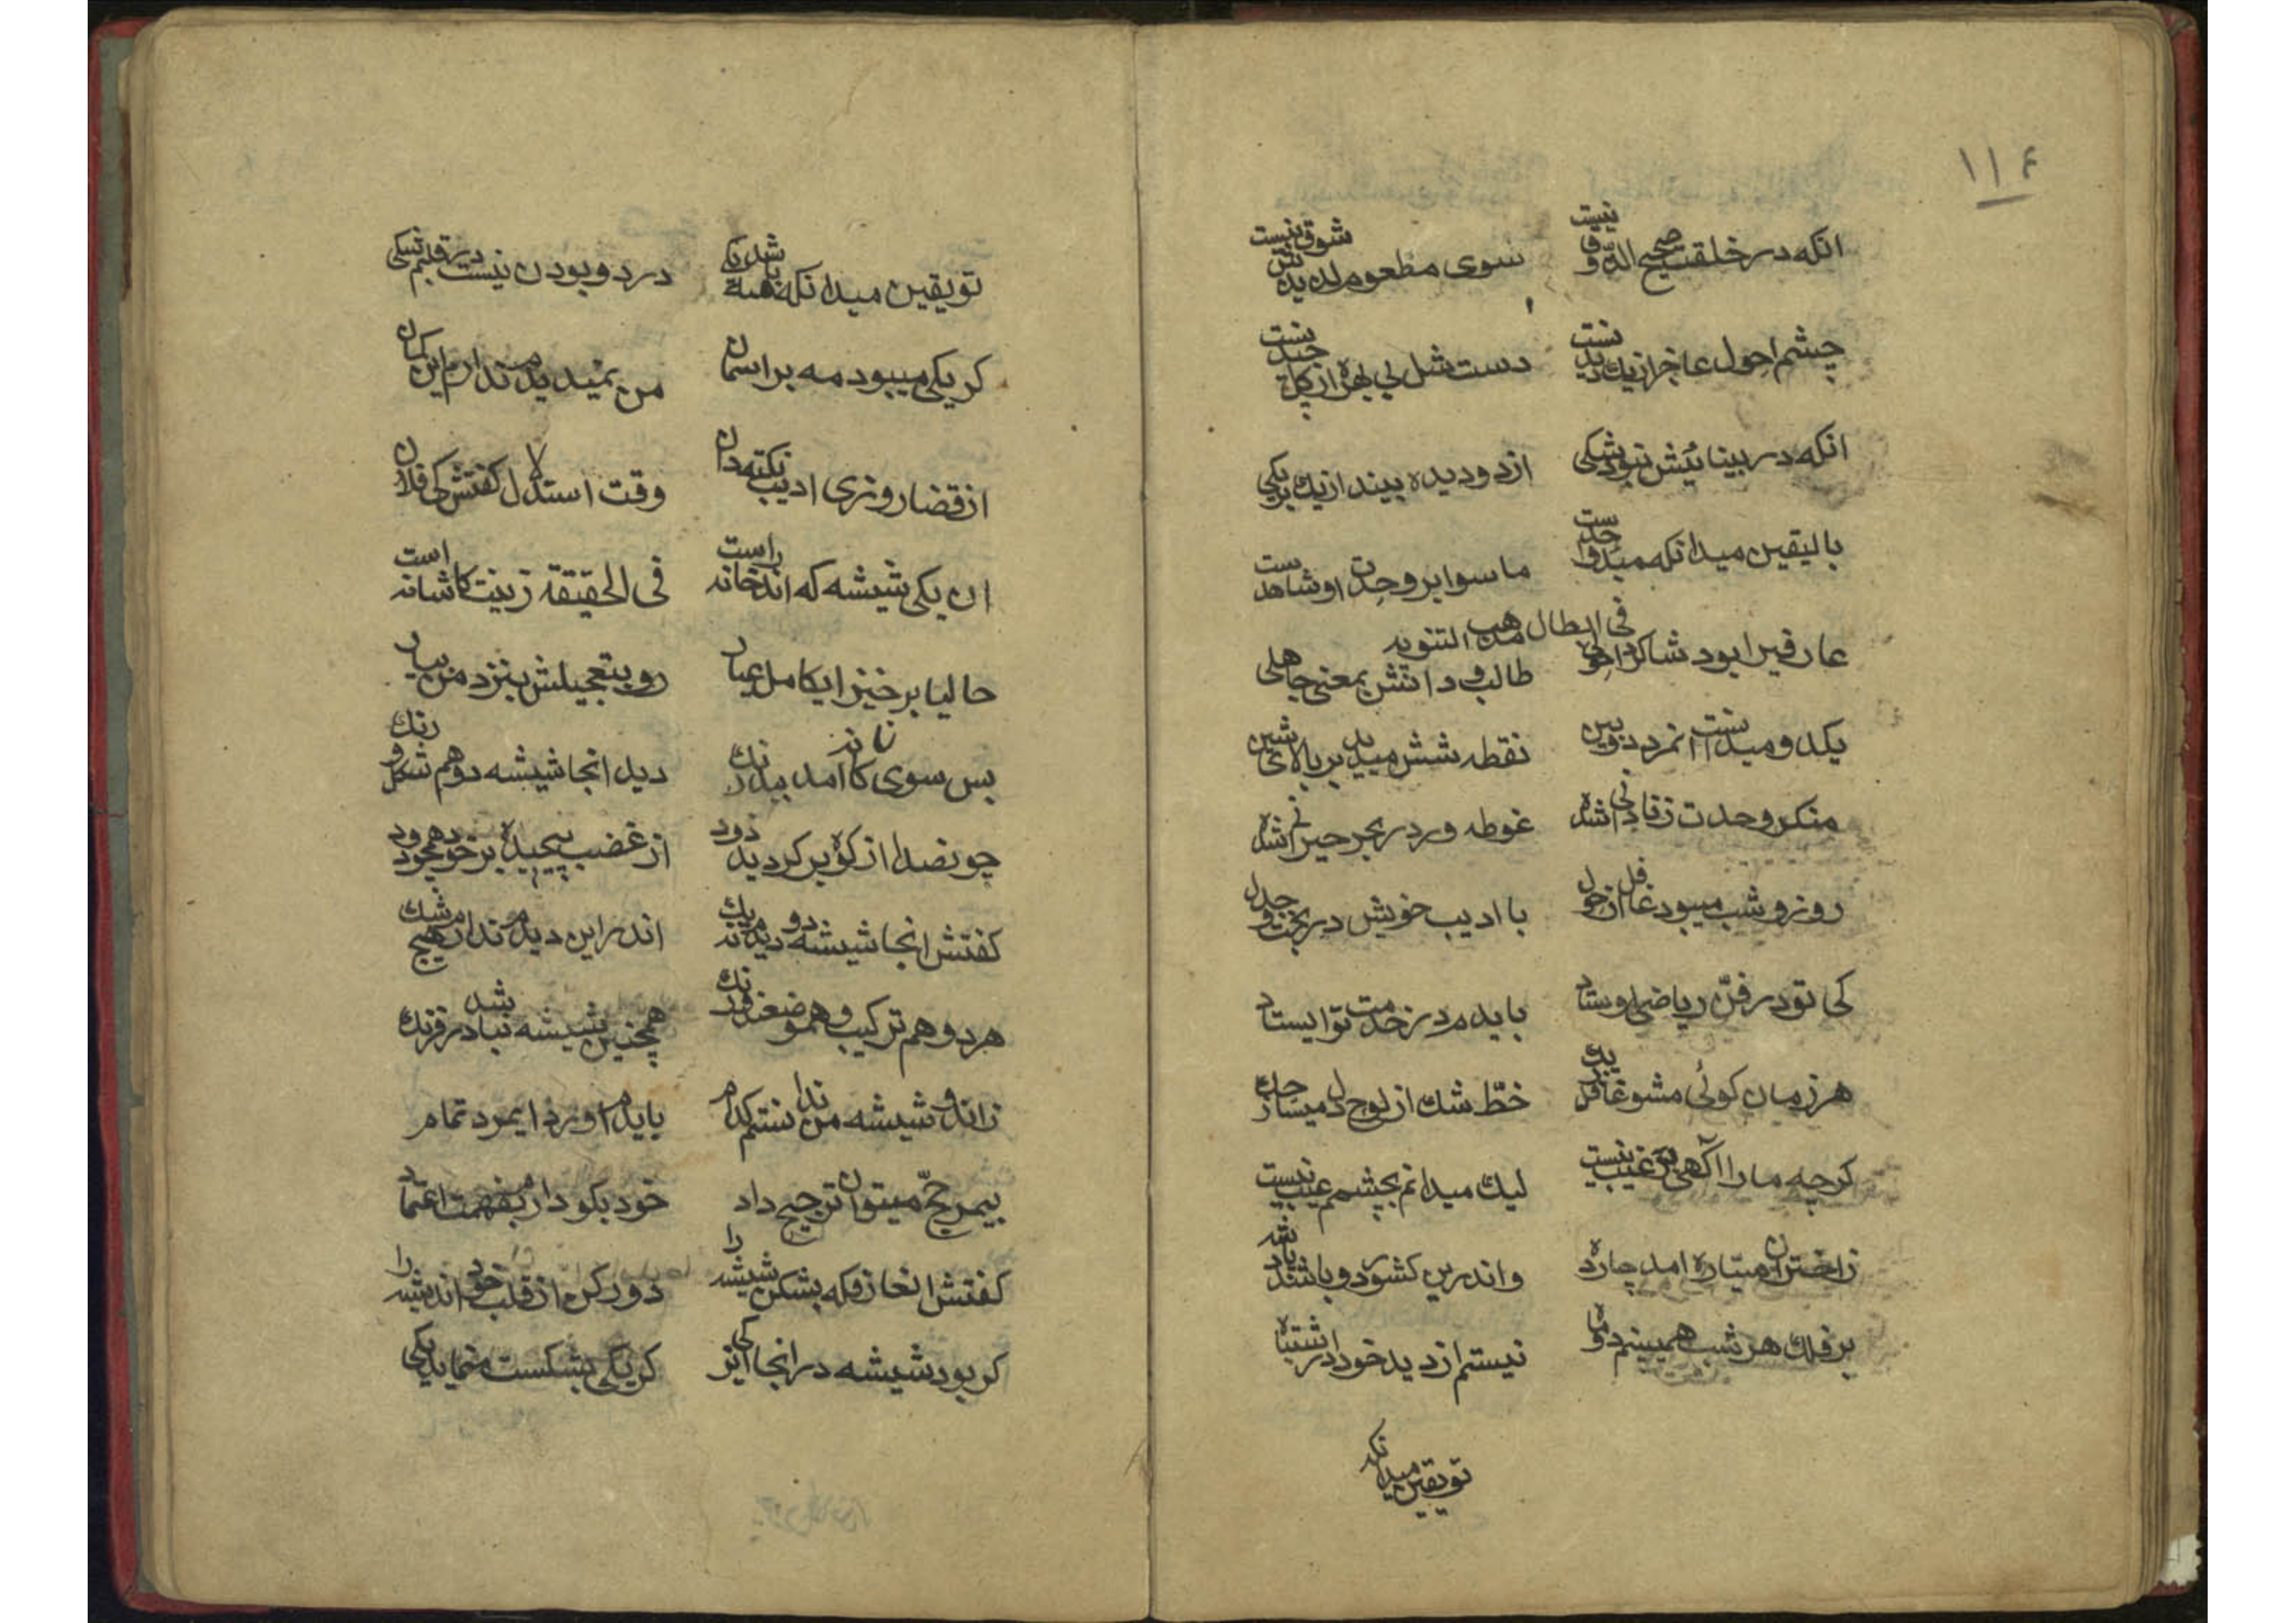 ۱۱۴
انکه در خلقت صحیح الذوق نیست سوی مطعوم لذیذش شوق نیست
چشم احول عاجز از یک دید نیست دست شل بی بهره از کل چید نیست
انکه در بینائیش نبود شکی از دو دیده بیند از یک بر یکی
بالیقین میدانکه مبدء واحدست ماسوا بر وحدت او شاهدست
فی ابطال مذهب التنویه
عارفیرا بود شاکرد احولی طالب دانش بمعنی جاهلی
یکدو میدانست آنمرد دوبین نقطه شش میدید بر بالای شین
منکر وحدت زنادانی شده غوطه ور در بحر حیرانی شده
روز و شب میبود غافل از خول با ادیب خویش در بحث و جدل
کی تو در فن ریاضی اوستاد باید مرد در خدمت تو ایستاد
هر زمان کوئی مشو غافل زیک خط شک از لوح دل میساز حک
کرچه مارا آکهی از غیب نیست لیک میدانم بچشمم عیب نیست
زاختران سیاره امد چارده واندرین کشور دو باشد باد شه
بر فلک هر شب همیبینم دو ماه نیستم از دید خود در اشتباه
تو یقین میدانکه
تو یقین میدانکه مه باشد یکی در دو بودن نیست در قلبم شکی
کر یکی میبود مه بر اسمان من نمیدیدم ندارم این کمان
از قضا روزی ادیب نکته دان وقت استدلال کفتش کی فلان
ان یکی شیشه که اندر خانه راست فی الحقیقة زینت کاشانه است
حالیا بر خیز ایکامل عیار رو بتعجیلش بنزد من بیار
بس سوی کاشانه آمد بیدرنک دید انجا شیشه دو هم شکل و رنک
چونصدا از کوه بر کردید زود از غضب پیچیده بر خود همچو دود
کفتش انجا شیشه دو دیدم نه یک اندر این دیدم ندارم هیچ شک
هر دو هم ترکیب و هموضع و درنک همچنین شیشه نباشد در فرنک
زاندو شیشه من ندانستم کدام باید اورد ایمرد تمام
بیمرجح میتوان ترجیح داد خود بکو دارم بفهمت اعتماد
کفتش انعارفکه بشکن شیشه را دور کن از قلب خود اندیشه را
کر بود شیشه در انجا این کی کر یکی بشکست ننماید یکی